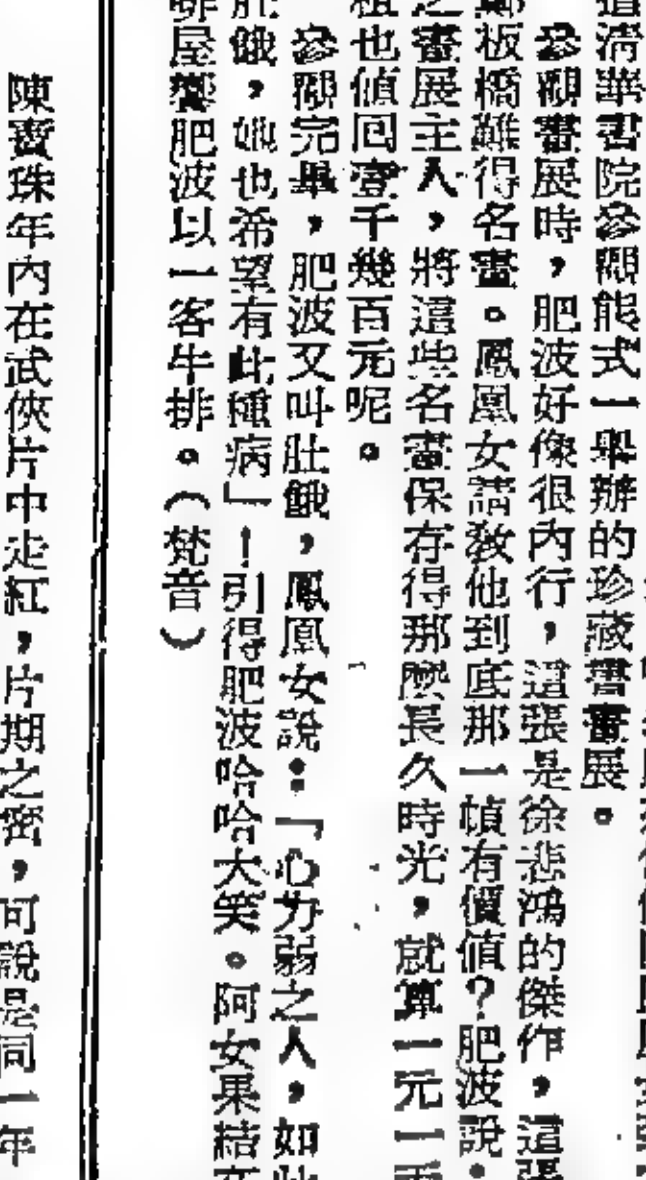 道清華書院參觀熊式一舉辦的珍藏書畫展。
參觀書展時，肥波好像很内行，這張是徐悲鴻的傑作，這張
鄭板橋難得名畫。鳳凰女請教他到底那一幀有價值？肥波說：
之畫展主人，將這些名畫保存得那麽長久時光，就算一元一
租也值回壹千幾百元呢。
參觀完畢，肥波又叫肚餓，鳳凰女說：「心力弱之人，如此
肚餓，她也希望有此種病」！引得肥波哈哈大笑。阿女果結
啡屋饗肥波以一客牛排。（梵音）
陳寶珠年内在武俠片中走紅，片期之密，可說是同一年